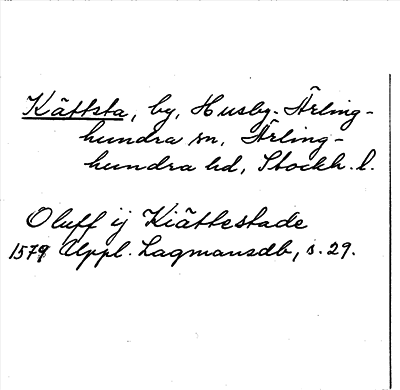 Kättsta, by, Husby-Ärling-
hundra sn, Ärling-
hundra hd, Stockh. l.
Oluff ij Kiättestade
1579 Uppl. Lagmansdb, s. 29.